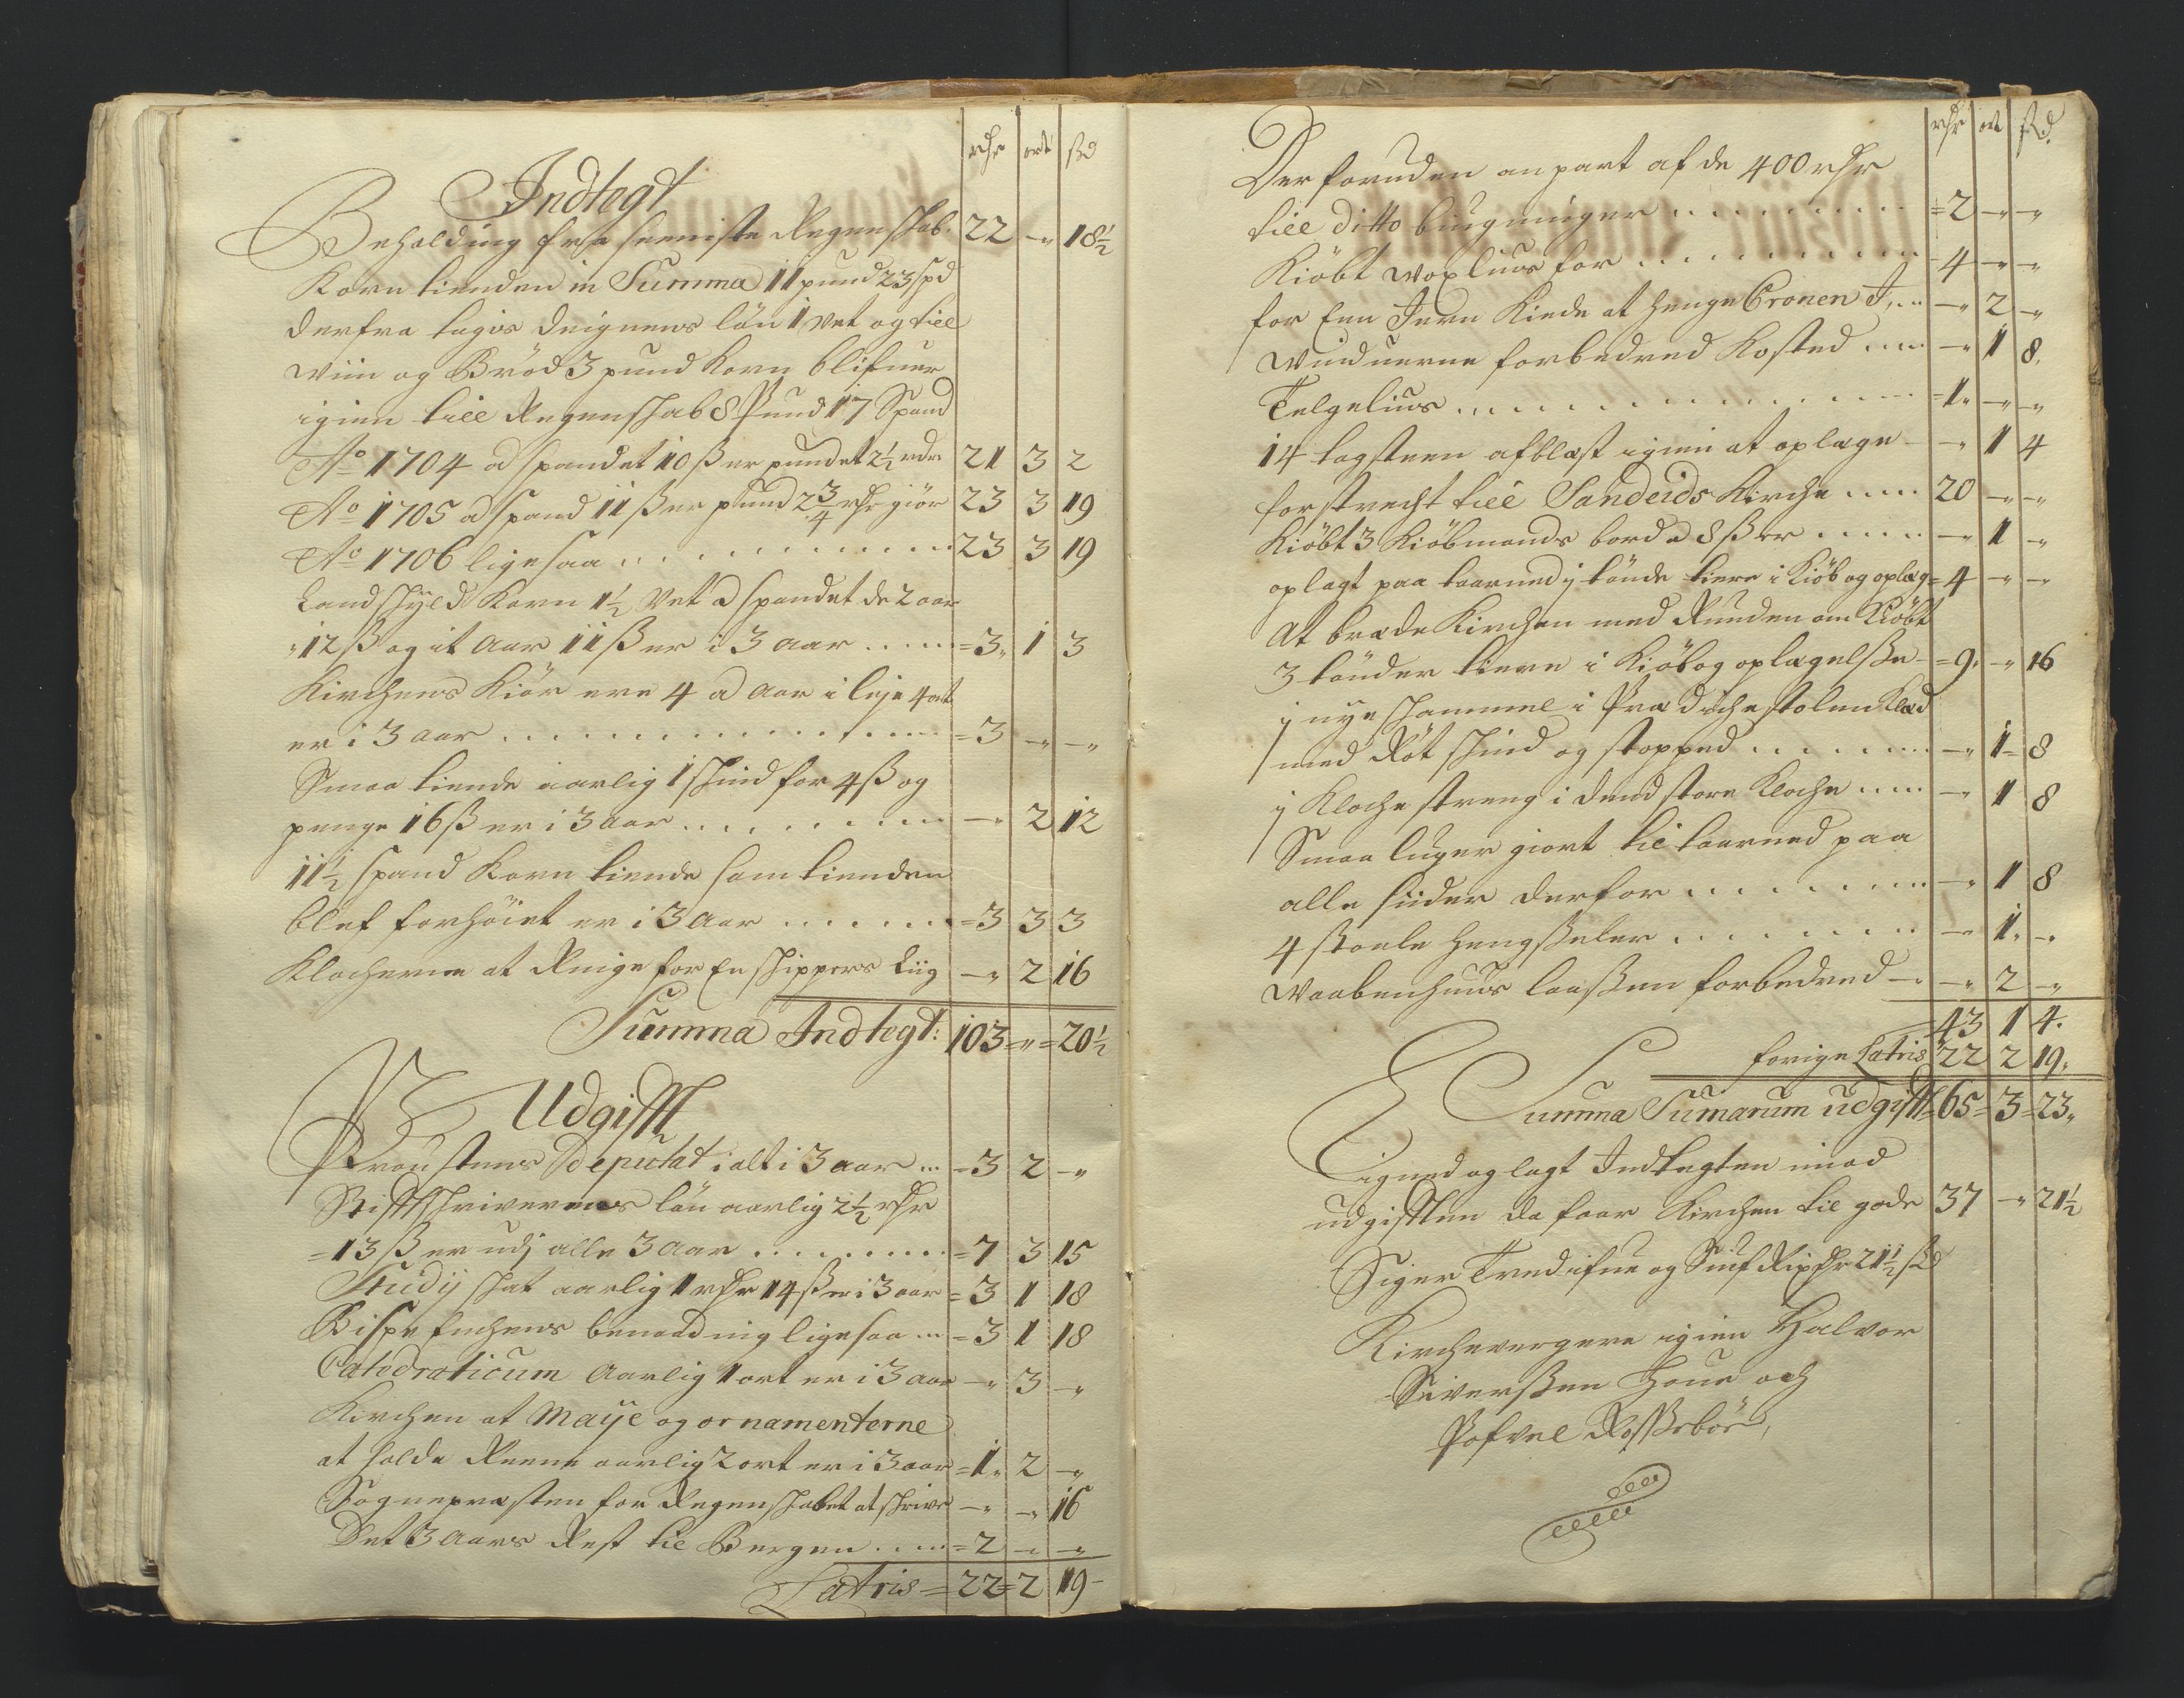 rdr ort ßd
Indtegt
Beholding fra seeniste Regenskab. 22 -" 18½
Korn tienden in Summa 11 pund 23 spd
derfra tages deignens lön 1 Vet og till
Wiin og Bröd 3 pund Korn blifuer
igien till Regenskab 8 Pund 17 Spand
Aº 1704 a spandet 10 ß er pundet 2½ rdr 21 3 2
Aº 1705 a spand 11 ß er pund 2¾ rdr giör 23 3 19
Aº 1706 ligesaa 23 3 19
Landskyld Korn 1½ Vet a spandet de 2 aar
12 ß og it Aar 11 ß er i 3 aar =3" 1 3
Kirchens Kiör ere 4 a Aar i leje 4 ort
er i 3 aar =3 -" -"
Smaa tiende aarlig 1 skind for 4 ß og
penge 16 ß er i 3 aar -" 2 12
11½ spand Korn tiende som tienden
blef forhöiet er i 3 Aar =3 3 3
Klocherne at Ringe for En skippers Liig -" 2 16
Summa Indtegt: 103 =" =20½
Udgifft
Proustens Deputat i alt i 3 aar =3 2 -"
Stifftskriverens lön aarlig 2½ rdr
=13 ß er udj alle 3 Aar =7 3 15
Studij skat aarlig 1 rdr 14 ß er i 3 aar =3 1 18
Bispe enchens benaadning ligesaa =3 1 18
Catedraticum Aarlig 1 ort er i 3 Aar -" 3 -"
Kirchen at Maije og ornamenterne
at holde Reene aarlig 2 ort er i 3 aar =1" 2 -"
Sognepræsten for Regenskabet at skrive -" -" 16
Det 3 Aars Rest til Bergen =2 -" -"
Latris =22 =2 19-
rdr ort ßd.
Der foruden anpart af de 400 rdr
till ditto biugninger =2 -" -"
Kiöbt Woxliuus for 4 -" -"
for Enn Jern Kiede at henge Cronen J, -" 2 -"
Winduerne forbedred Kosted -" 1 8.
Telgeliuus =1" -" -"
14 tagsteen afblæst igien at oplæge -" 1 4
forstrecht till Sandeids Kirche 20 -" -"
Kiöbt 3 Kiöbmands bord a 8 ß er -" 1 -"
oplagt paa taarned j tönde tiere i Kiöb og oplæg =4 -" -"
At bræde Kirchen med Runden om Kiöbt
3 tönder tiere i Kiöb og oplægelße =9" -" 16
j nye skammel i Prædichestolen klæd
med Röt skind og stopped -" 1= 8
j Kloche streng i dend store Kloche -" 1 8
Smaa luger giort til taarned paa
alle siider derfor -" 1 8
4 stoele hengßeler -" 1" -"
Waabenhuus laaßen forbedred -" 2 -"
43 1 4.
forige Latris 22 2 19.
Summa Sumarum udgifft =65= 3=23"
Ligned og lagt Indtegten imod
udgifften da faar Kirchen til gode 37 -" 21½
Siger Tredifue og Siuf Rixdr 21½ ßd
Kirchevergere igien Halvor
Siverßen Houe och
Pofvel Roßeböe,